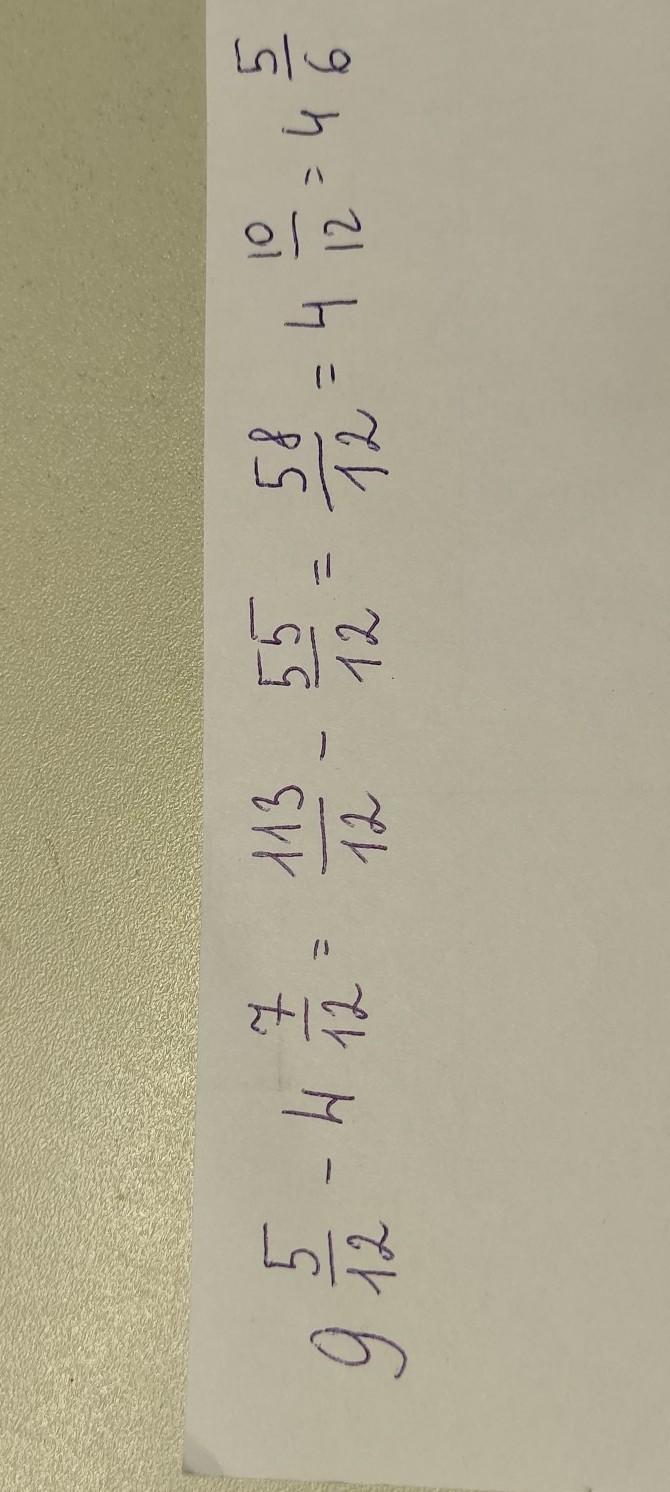 9 5/12 - 4 7/12 = 113/12 - 55/12 = 58/12 = 4 10/12 = 4 5/6